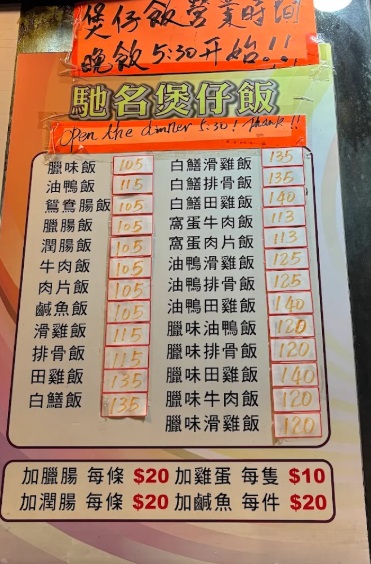 煲仔飯營業時間
晚飯 5:30 开始!!
馳名煲仔飯
Open the dinner 5:30! Thank!!
臘味飯 105
油鴨飯 115
鴛鴦腸飯 105
臘腸飯 105
潤腸飯 105
牛肉飯 105
肉片飯 105
鹹魚飯 105
滑雞飯 115
排骨飯 115
田雞飯 135
白鱔飯 135
白鱔滑雞飯 135
白鱔排骨飯 135
白鱔田雞飯 140
窩蛋牛肉飯 113
窩蛋肉片飯 113
油鴨滑雞飯 125
油鴨排骨飯 125
油鴨田雞飯 140
臘味油鴨飯 120
臘味排骨飯 120
臘味田雞飯 140
臘味牛肉飯 120
臘味滑雞飯 120
加臘腸 每條 $20 加雞蛋 每隻 $10
加潤腸 每條 $20 加鹹魚 每件 $20